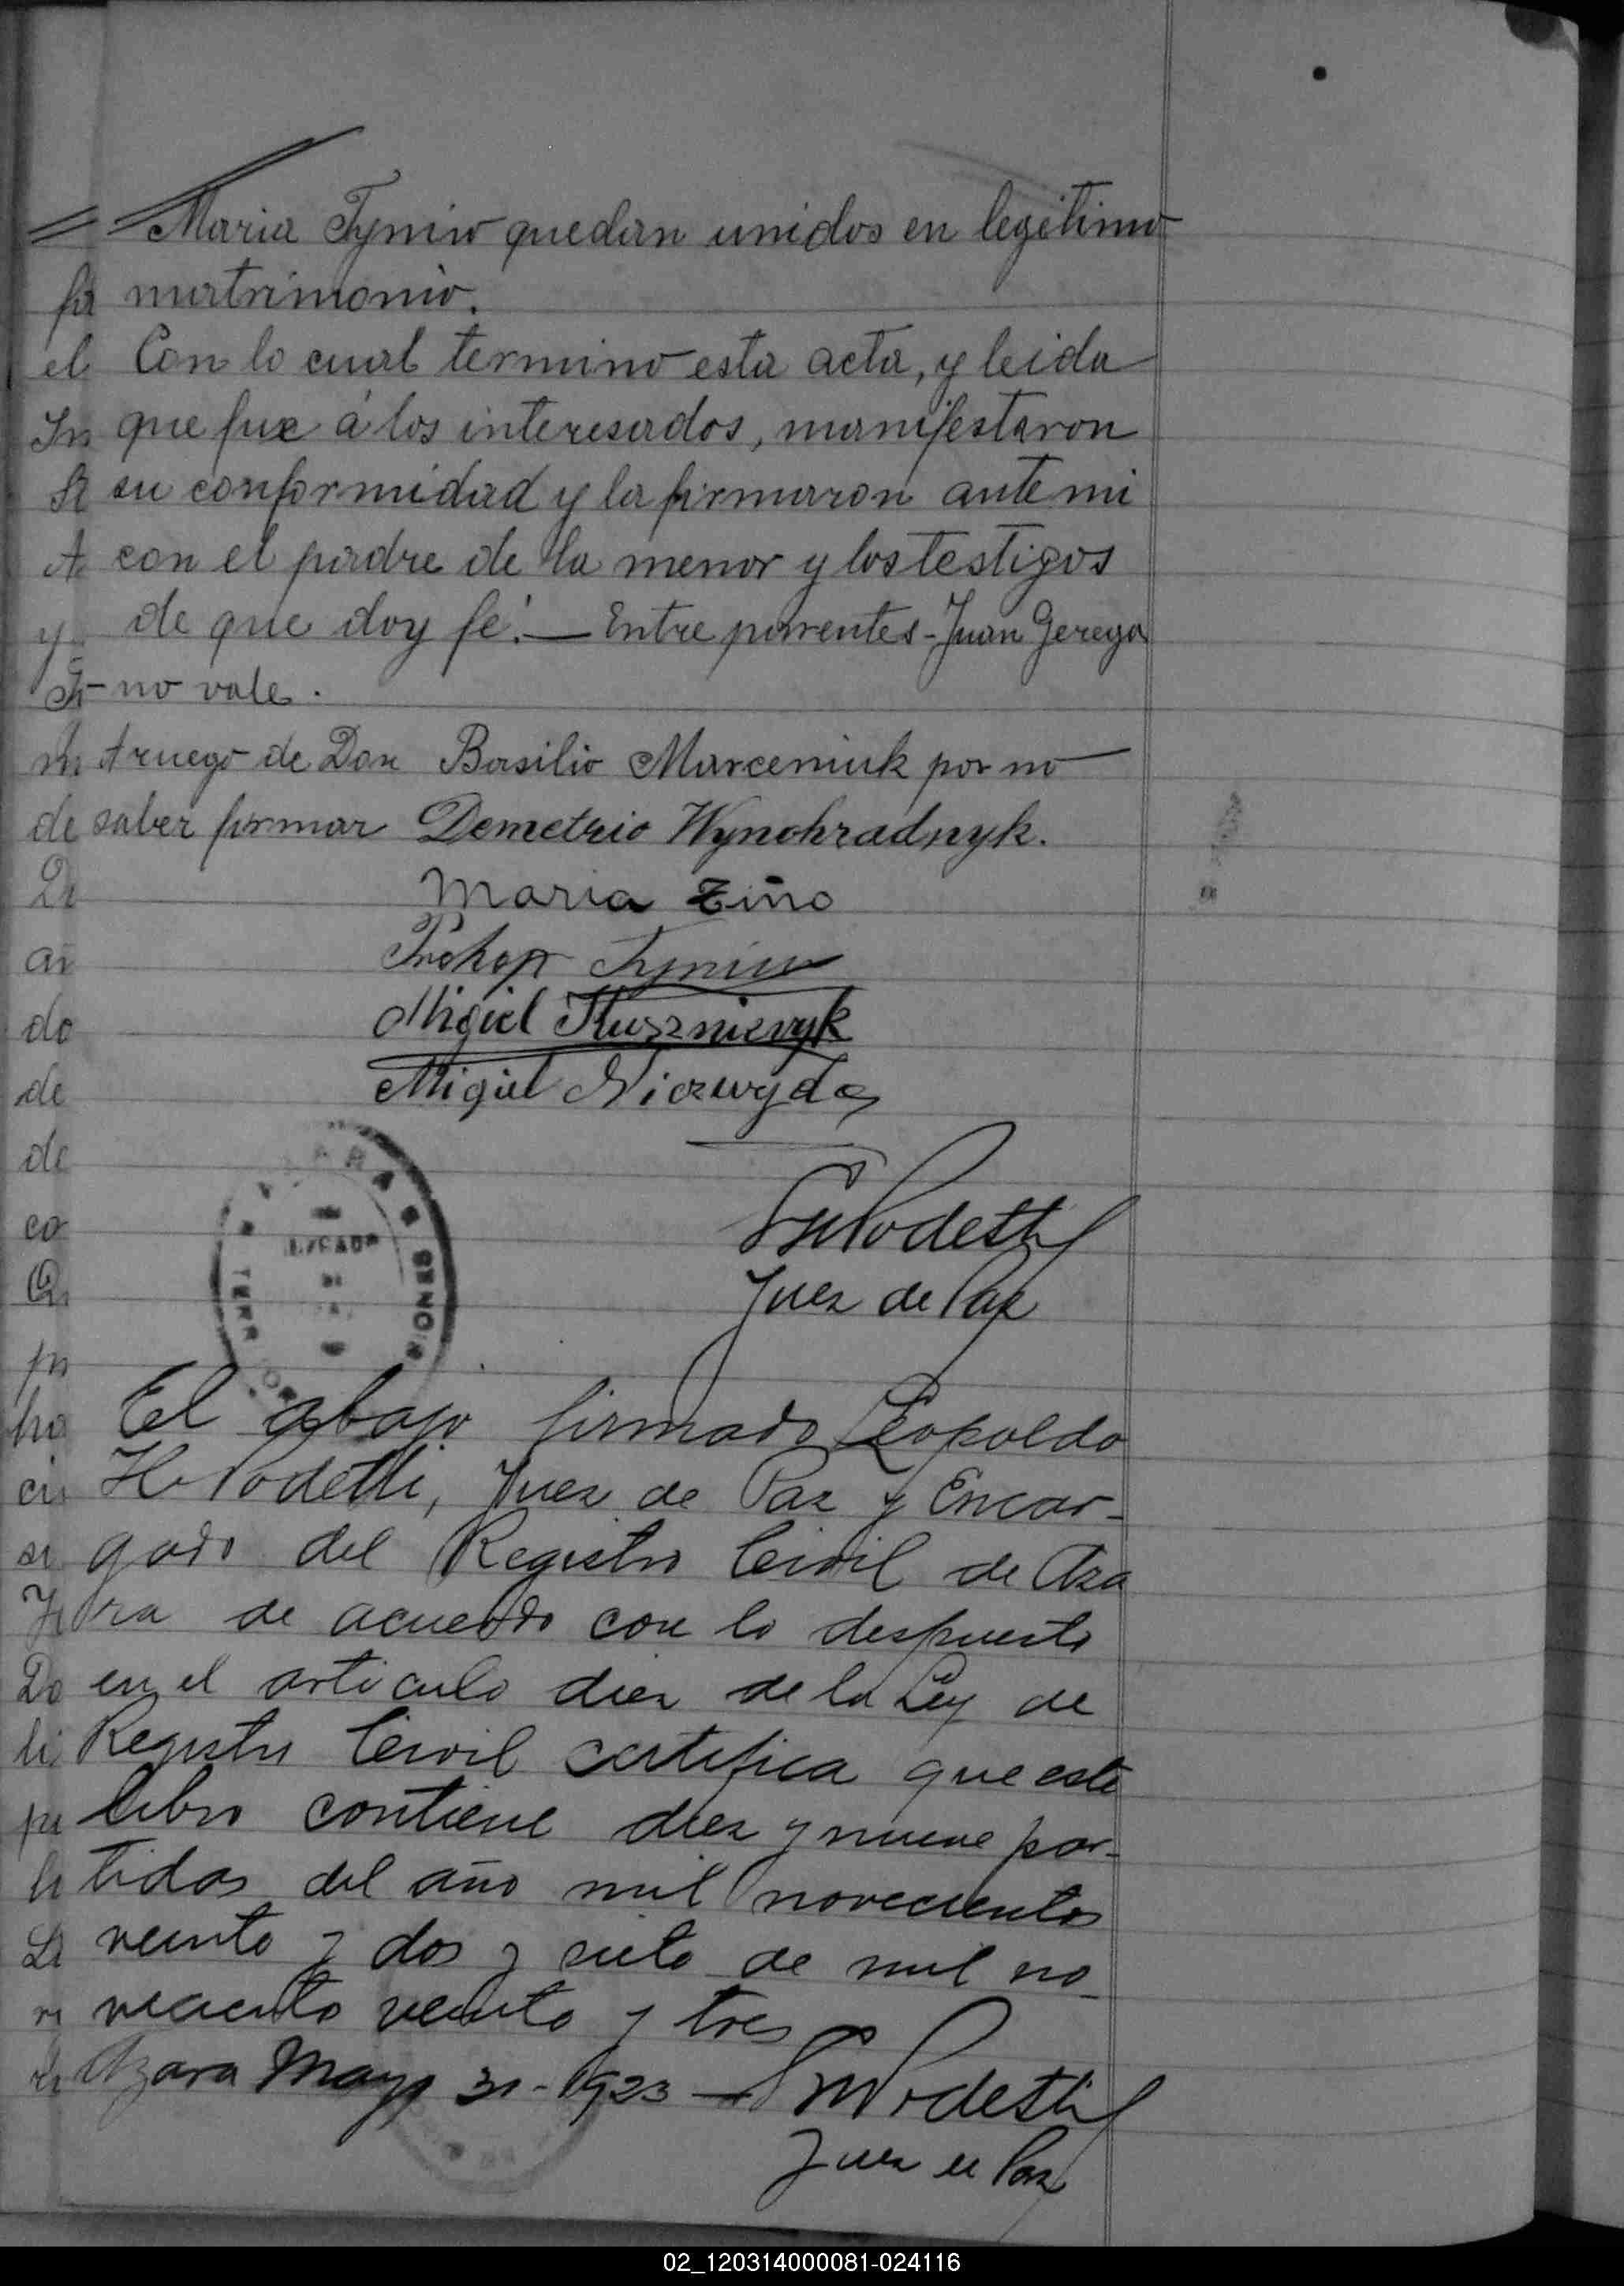 Maria Tyniw quedan unidos en legítimo
matrimonio.
Con lo cual termino esta acta, y leida
que fue á los interesados, manifestaron
su conformidad y la firmaron ante mi
con el padre de la menor y los testigos
de que doy fé. — Entre parentes - Juan Gerega
- no vale.
A ruego de Don Basilio Marceniuk por no
saber firmar Demetrio Wynohradnyk.
Maria Ziño
Prokop Tyniw
Miguel
Miguel
Podesti
Juez de Paz
El abajo firmado Leopoldo
H. Podetti, Juez de Paz y Encar-
gado del Registro Civil de Aza
ra de acuerdo con lo despuesto
en el articulo diez de la Ley de
Registro Civil certifica que este
libro contiene diez y nueve par-
tidas del año mil novecientos
veinte y dos y siete de mil no-
veciento veinte y tres
Azara Mayo 31-1923 — Podesti
Juez de Paz
02_120314000081-024116